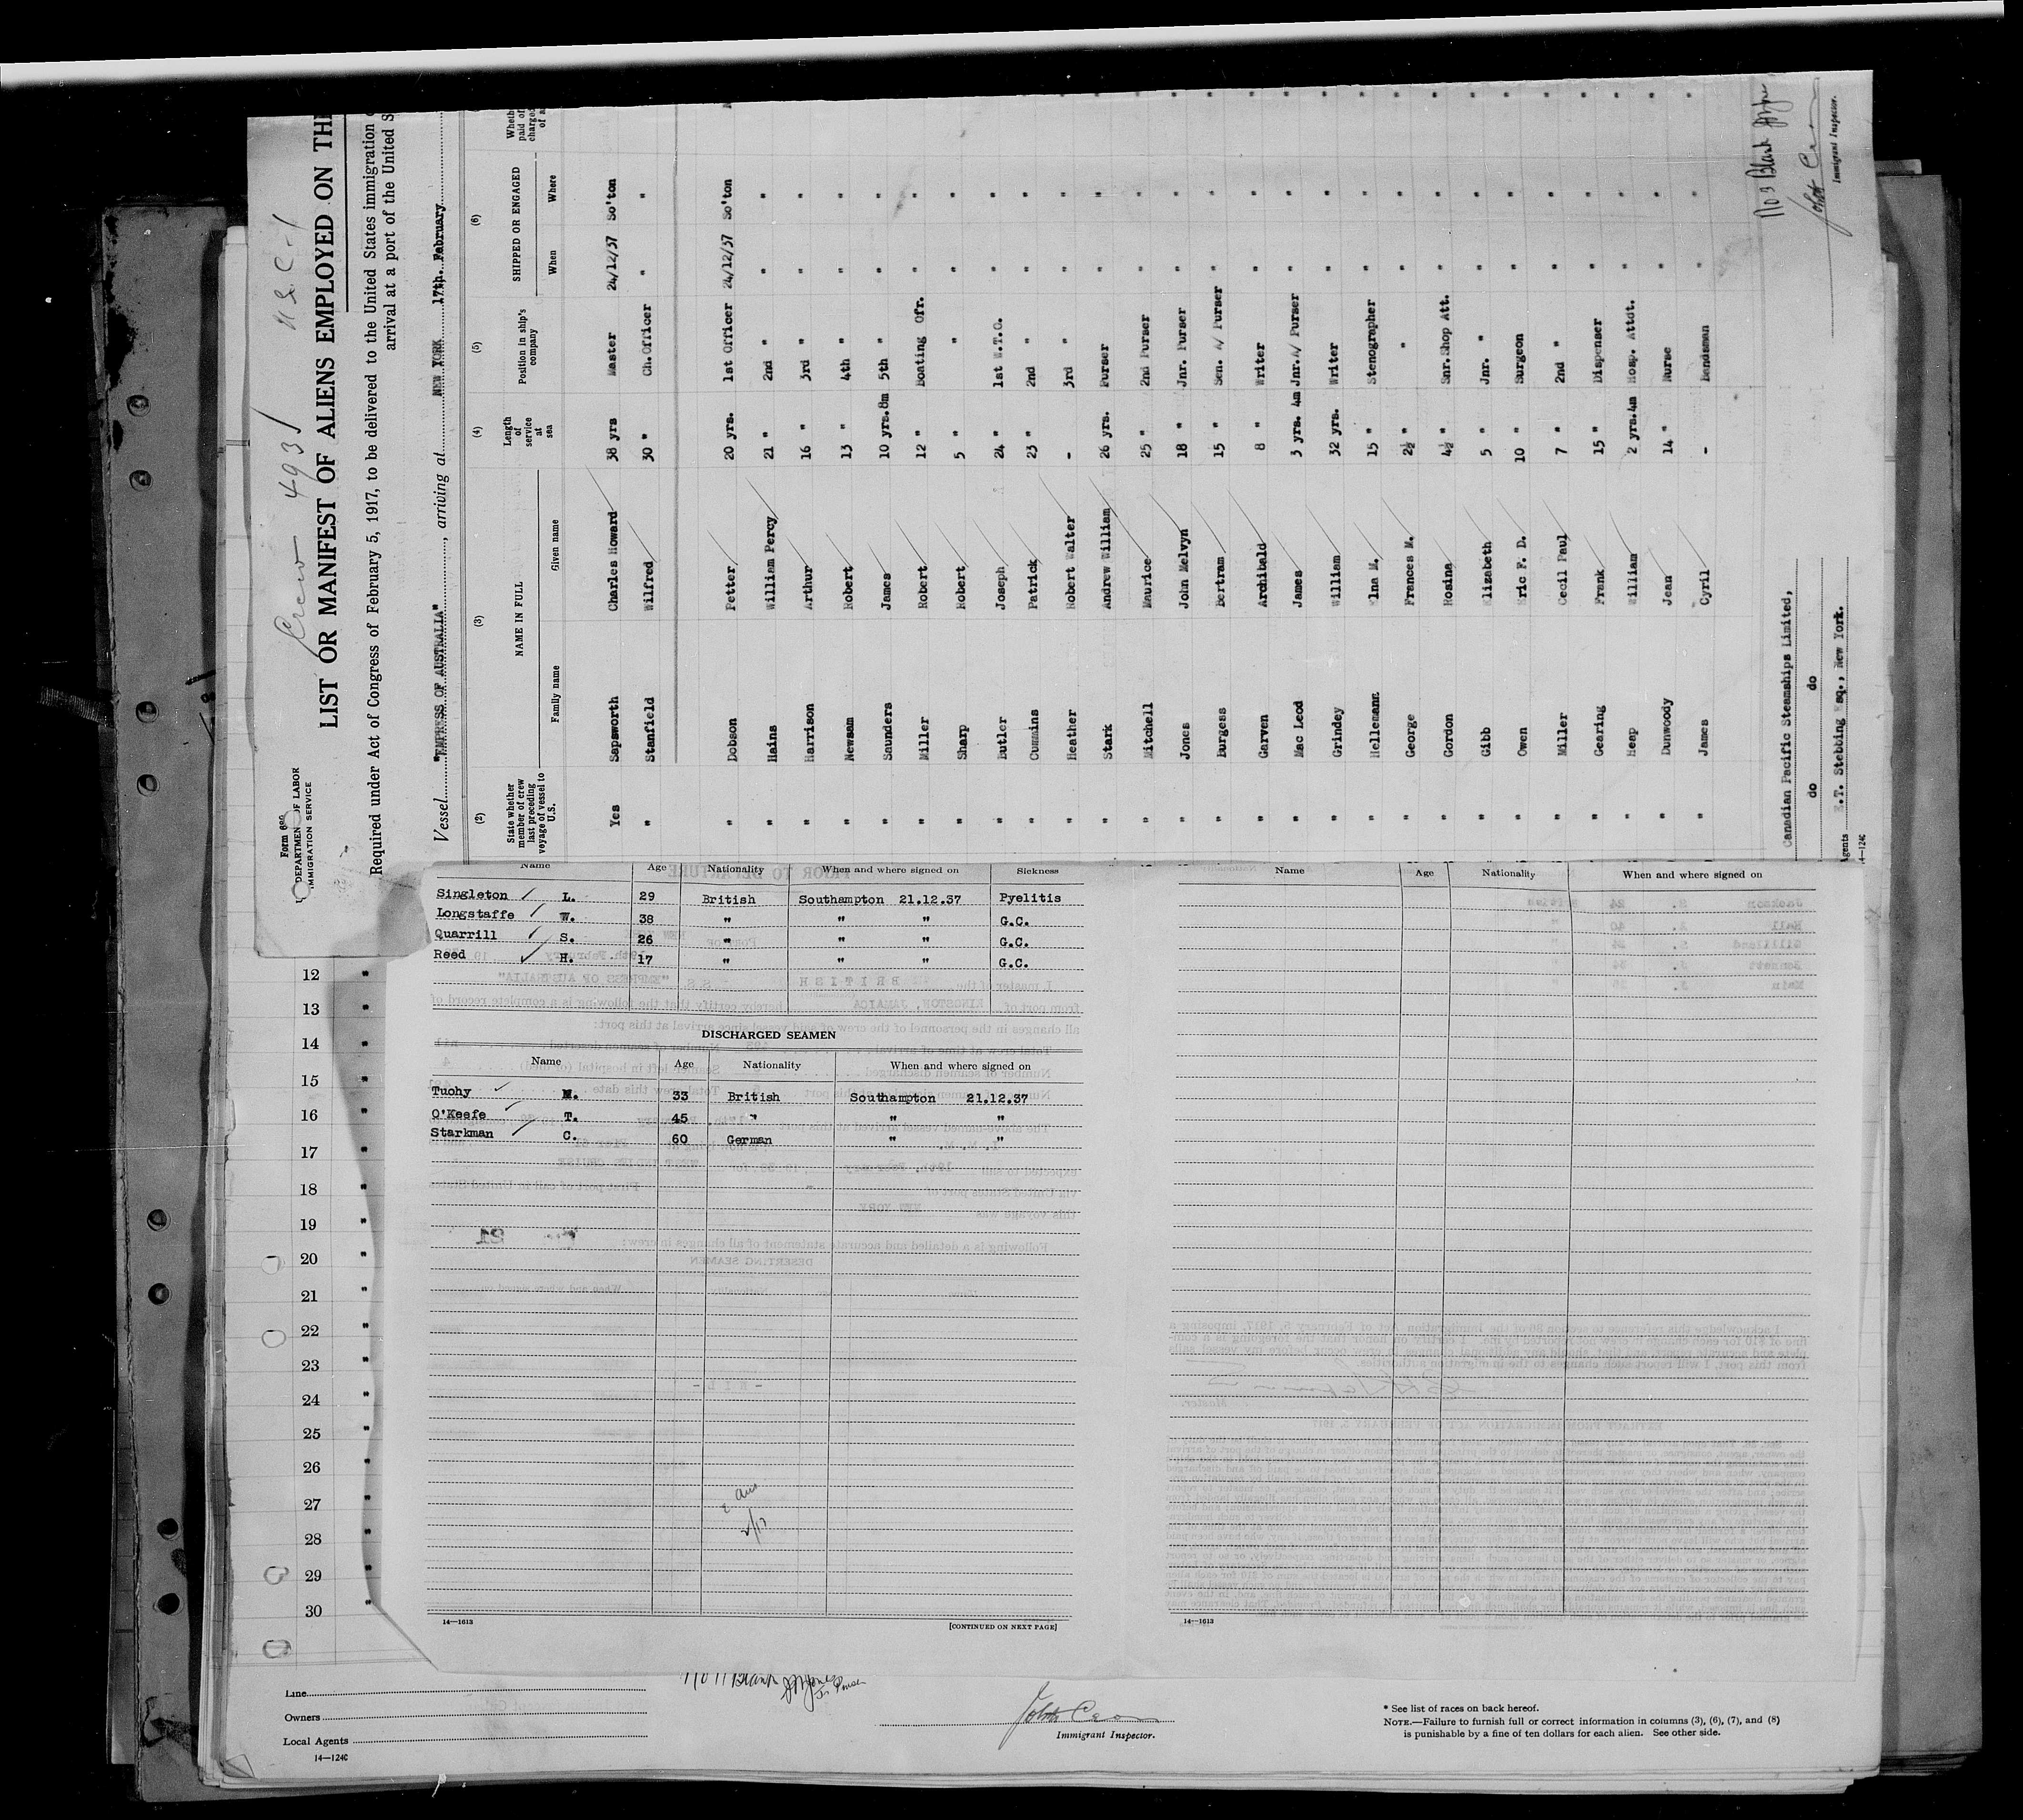 Crew 493
Form 689
DEPARTMENT OF LABOR
IMMIGRATION SERVICE
LIST OR MANIFEST OF ALIENS EMPLOYED ON THE
Required under Act of Congress of February 5, 1917, to be delivered to the United States immigration
arrival at a port of the United S
Vessel "EMPRESS OF AUSTRALIA", arriving at NEW YORK 17th. February
(2) (3) (4) (5) (6)
State whether member of crew last preceding voyage of vessel to U.S. NAME IN FULL Length of service at sea Position in ship's company SHIPPED OR ENGAGED
Family name Given name When Where
Yes Sapsworth Charles Howard 38 yrs Master 24/12/37 So'ton
" Stanfield Wilfred 30 " Ch.Officer " "
" Dobson Petter 20 yrs. 1st Officer 24/12/37 So'ton
" Hains William Percy 21 " 2nd " " "
" Harrison Arthur 16 " 3rd " " "
" Newsam Robert 13 " 4th " " "
" Saunders James 10 yrs.8m 5th " " "
" Miller Robert 12 " Boating Ofr. " "
" Sharp Robert 5 " " " "
" Butler Joseph 24 " 1st W.T.O. " "
" Cummins Patrick 23 " 2nd " " "
" Heather Robert Walter - 3rd " " "
" Stark Andrew William 26 yrs. Purser " "
" Mitchell Maurice 25 " 2nd Purser " "
" Jones John Melvyn 18 " Jnr. Purser " "
" Burgess Bertram 15 " Sen. A/ Purser " "
" Garven Archibald 8 " Writer " "
" Mac Leod James 3 yrs. 4m Jnr.A/ Purser " "
" Grindey William 32 yrs. Writer " "
" Hellemann Elna M. 15 " Stenographer " "
" George Frances M. 2½ " " " "
" Gordon Rosina 4½ " Snr.Shop Att. " "
" Gibb Elizabeth 5 " Jnr. " " "
" Owen Eric F. D. 10 " Surgeon " "
" Miller Cecil Paul 7 " 2nd " " "
" Gearing Frank 15 " Dispenser " "
" Heap William 2 yrs.4m Hosp. Attdt. " "
" Dunwoody Jean 14 " Nurse " "
" James Cyril - Bandsman " "
Canadian Pacific Steamships Limited,
do do
Agents E.T. Stebbing Esq., New York.
14—124C
No 3 Blank
Immigrant Inspector.
Name Age Nationality When and where signed on Sickness
Singleton L. 29 British Southampton 21.12.37 Pyelitis
Longstaffe W. 38 " " " G.C.
Quarrill S. 26 " " " G.C.
Reed H. 17 " " " G.C.
DISCHARGED SEAMEN
Name Age Nationality When and where signed on
Tuohy M. 33 British Southampton 21.12.37
O'Keefe T. 45 " " "
Starkman C. 60 German " "
14—1613
[CONTINUED ON NEXT PAGE]
Name Age Nationality When and where signed on
14—1613
12 "
13 "
14 "
15 "
16 "
17 "
18 "
19 "
20 "
21 "
22 "
23 "
24 "
25 "
26 "
27 "
28 "
29 "
30 "
No 11 Blank
Line
Owners
Local Agents
14—124C
Immigrant Inspector.
* See list of races on back hereof.
NOTE.—Failure to furnish full or correct information in columns (3), (6), (7), and (8)
is punishable by a fine of ten dollars for each alien. See other side.